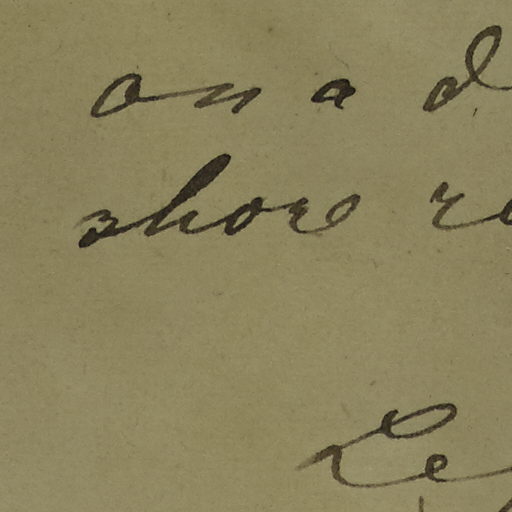 on a d
shore re
Le